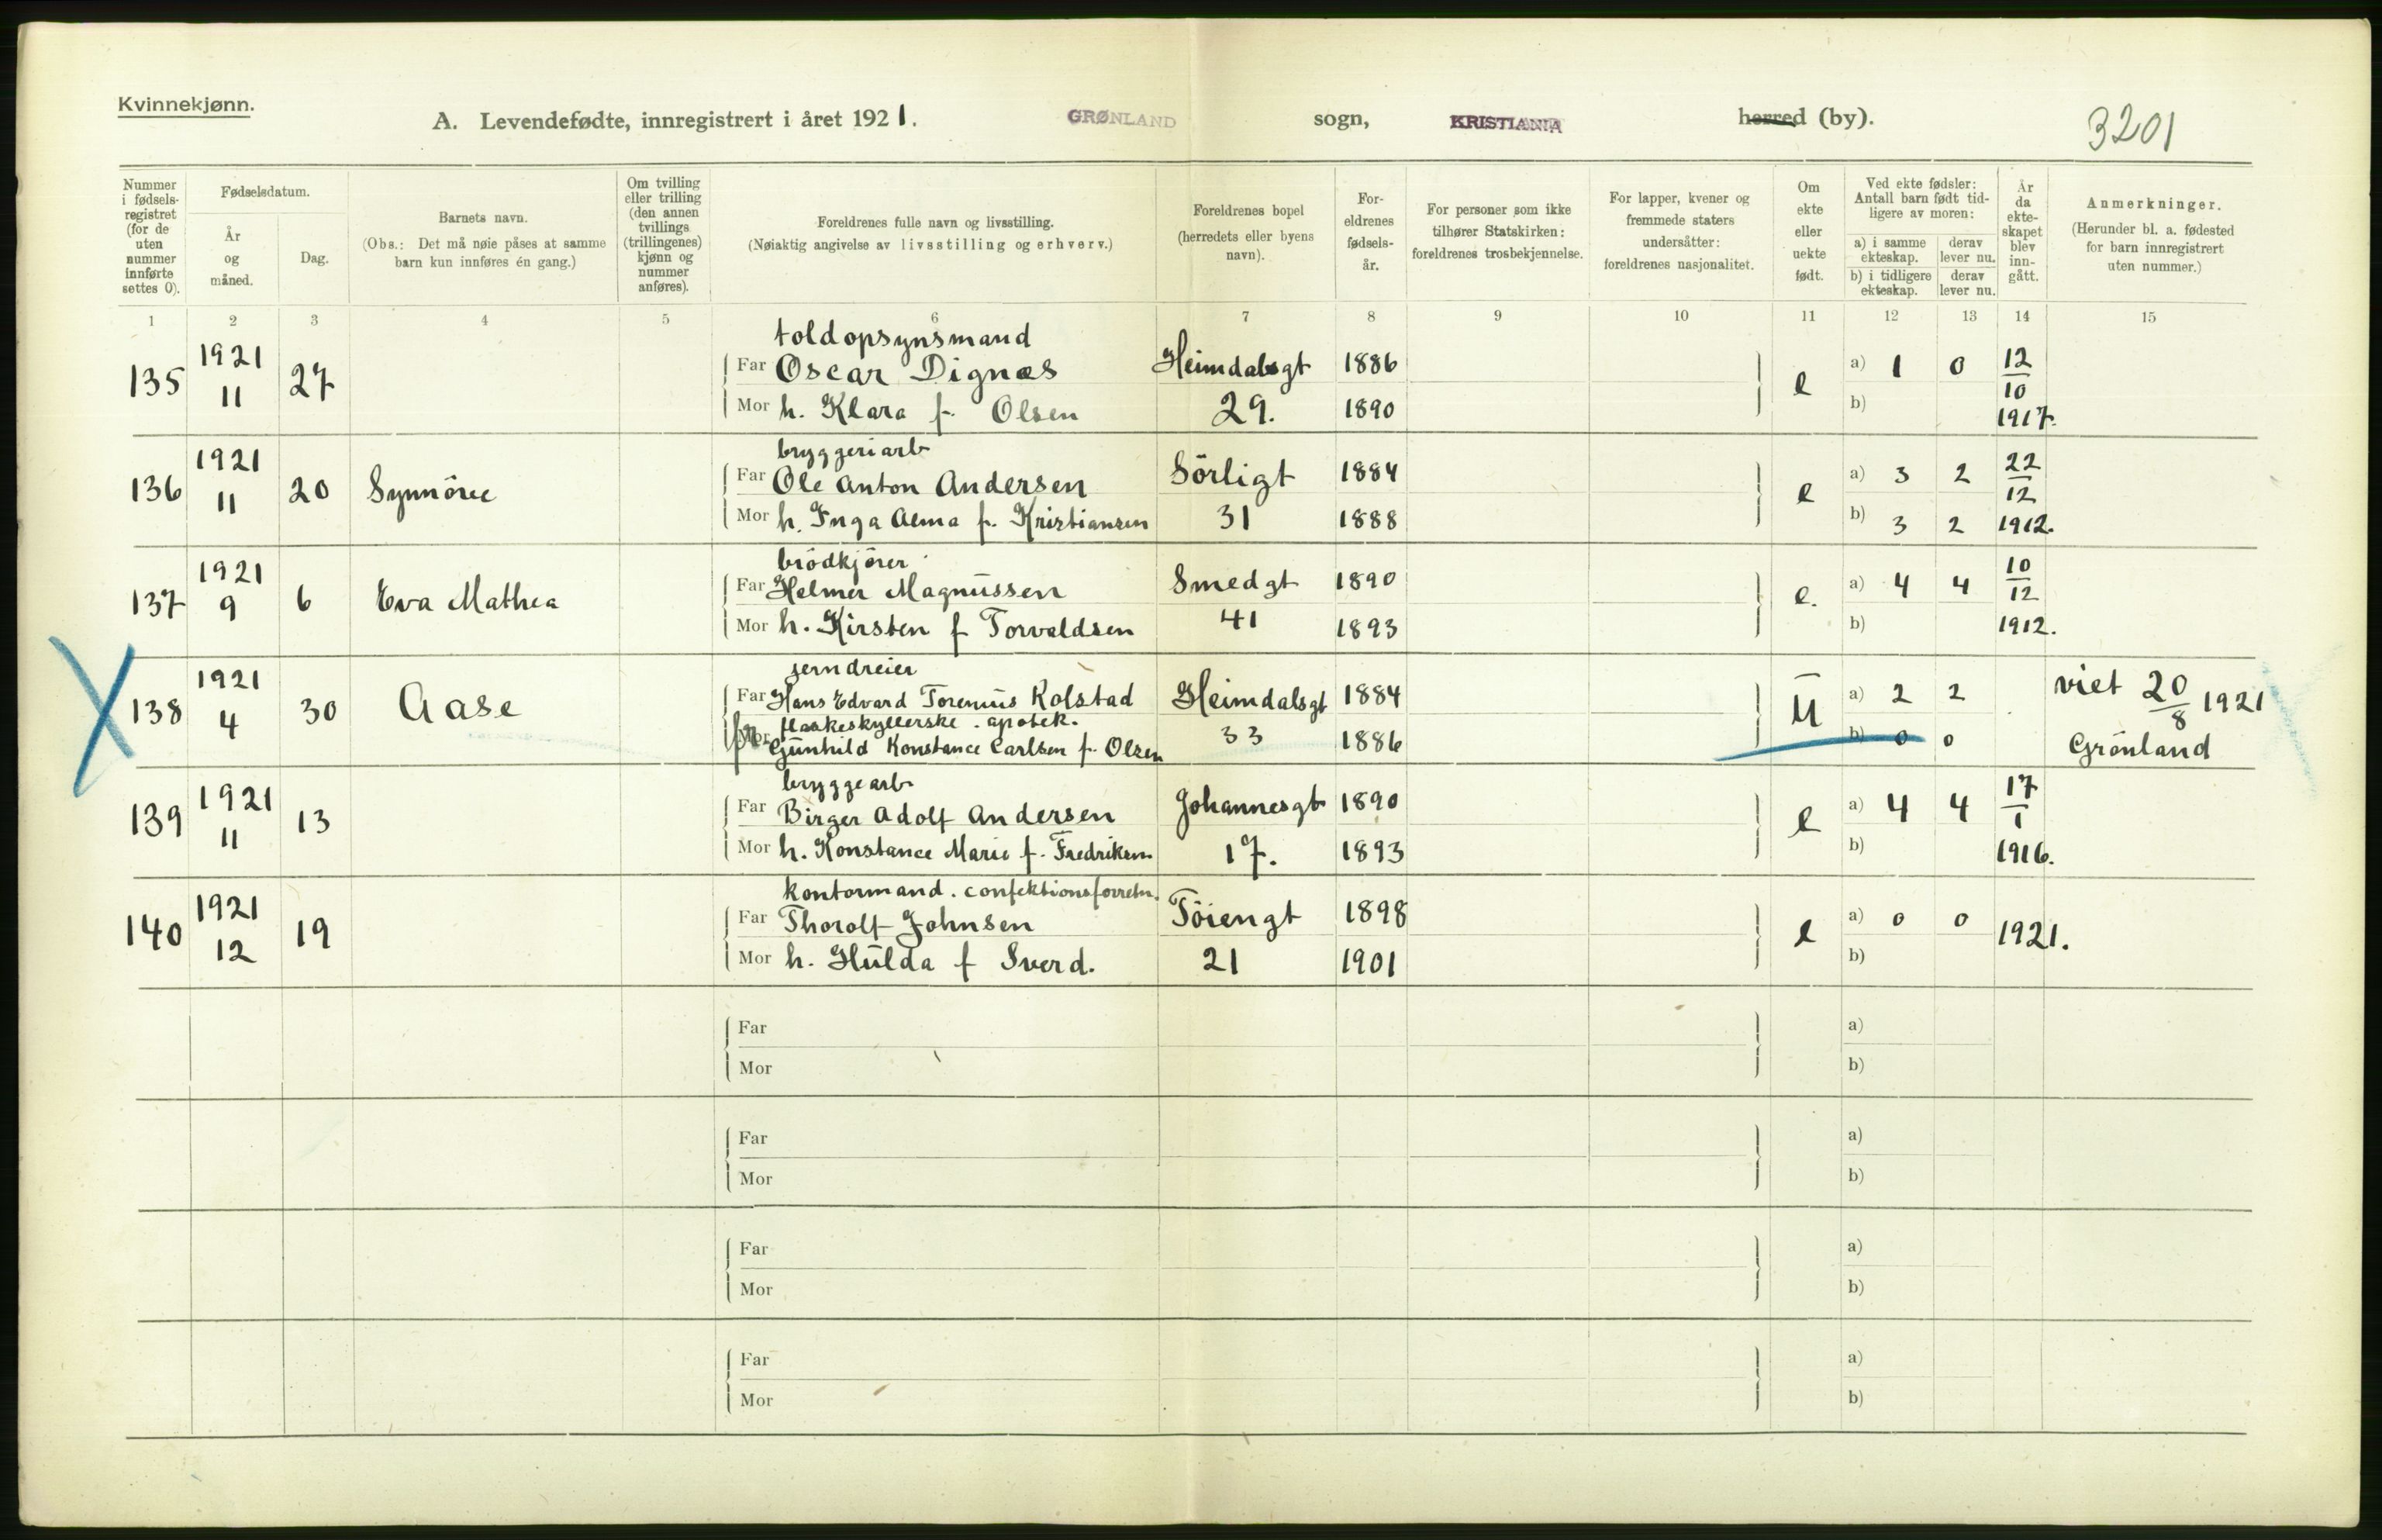 Kvinnekjønn.
A. Levendefødte, innregistrert i året 1921. GRØNLAND sogn, KRISTIANIA herred (by). 3201
Nummer i fødsels-registret (for de uten nummer innførte settes 0).
Fødselsdatum.
År og måned.
Dag.
Barnets navn.
(Obs.: Det må nøie påses at samme barn kun innføres én gang.)
Om tvilling eller trilling (den annen tvillings (trillingenes) kjønn og nummer anføres).
Foreldrenes fulle navn og livsstilling.
(Nøiaktig angivelse av livsstilling og erhverv.)
Foreldrenes bopel (herredets eller byens navn).
For-eldrenes fødsels-år.
For personer som ikke tilhører Statskirken: foreldrenes trosbekjennelse.
For lapper, kvener og fremmede staters undersåtter: foreldrenes nasjonalitet.
Om ekte eller uekte født.
Ved ekte fødsler: Antall barn født tid-ligere av moren:
a) i samme ekteskap. derav lever nu.
b) i tidligere ekteskap. derav lever nu.
År da ekte-skapet blev inn-gått.
Anmerkninger.
(Herunder bl. a. fødested for barn innregistrert uten nummer.)
1 2 3 4 5 6 7 8 9 10 11 12 13 14 15
toldopsynsmand
135 1921 11 27 Far Oscar Dignæs Heimdalsgt 1886 e a) 1 0 12/10
Mor h. Klara f. Olsen 29. 1890 b) 1917.
bryggeriarb
136 1921 11 20 Synnöve Far Ole Anton Andersen Sörligt 1884 e a) 3 2 22/12
Mor h. Inga Alma f. Kristiansen 31 1888 b) 3 2 1912.
brödkjörer
137 1921 9 6 Eva Mathea Far Helmer Magnussen Smedgt 1890 e. a) 4 4 10/12
Mor h. Kirsten f Torvaldsen 41 1893 b) 1912.
jerndreier
138 1921 4 30 Aase Far Hans Edvard Torenius Kolstad Heimdalsgt 1884 U a) 2 2 viet 20/8 1921
flaskeskyllerske. apotek.
Mor Gunhild Konstance Carlsen f. Olsen 33 1886 b) 0 0 Grönland
bryggearb
139 1921 11 13 Far Birger Adolf Andersen Johannesgt 1890 e a) 4 4 17/1
Mor h. Konstance Marie f. Fredriksen 17. 1893 b) 1916.
kontormand. confektionsforretn.
140 1921 12 19 Far Thorolf Johnsen Töiengt 1898 e a) 0 0 1921.
Mor h. Hulda f Sverd. 21 1901 b)
Far a)
Mor b)
Far a)
Mor b)
Far a)
Mor b)
Far a)
Mor b)